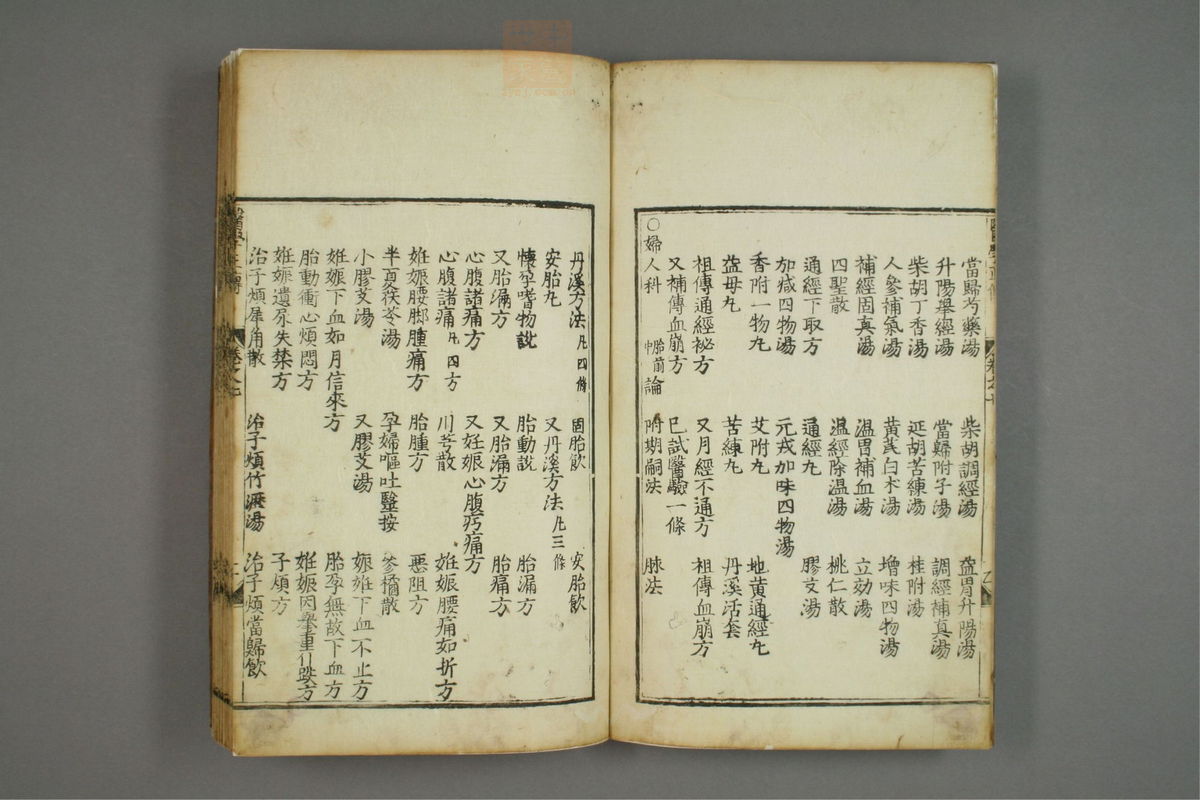 當歸芍藥湯 柴胡調經湯 益胃升陽湯
升陽舉經湯 當歸附子湯 調經補真湯
柴胡丁香湯 延胡苦練湯 桂附湯
人參補氣湯 黃芪白术湯 增味四物湯
補經固真湯 温胃補血湯 立効湯
四聖散 温經除湿湯 桃仁散
通經下取方 通經丸 膠艾湯
加减四物湯 元戎加味四物湯
香附一物丸 艾附丸 地黃通經丸
益母丸 苦練丸 丹溪活套
祖傳通經祕方 又月經不通方 祖傳血崩方
又補傳血崩方 已試醫驗一條
○婦人科 胎前中 論 附期嗣法 脉法
丹溪方法 凡四條 固胎飲 安胎飲
安胎丸 又丹溪方法 凡三條
懷孕嗜物說 胎動說 胎漏方
又胎漏方 又胎漏方 胎痛方
心腹諸痛方 又妊娠心腹㽲痛方
心腹諸痛 凡四方 川芎散 姙娠腰痛如折方
姙娠腰脚腫痛方 胎腫方 惡阻方
半夏茯苓湯 孕婦嘔吐醫按 參橘散
小膠艾湯 又膠艾湯 娠姙下血不止方
姙娠下血如月信來方 胎孕無故下血方
胎動衝心煩悶方 姙娠因舉重仆跌方
姙娠遺尿失禁方 子煩方
治子煩犀角散 治子煩竹瀝湯 治子煩當歸飲